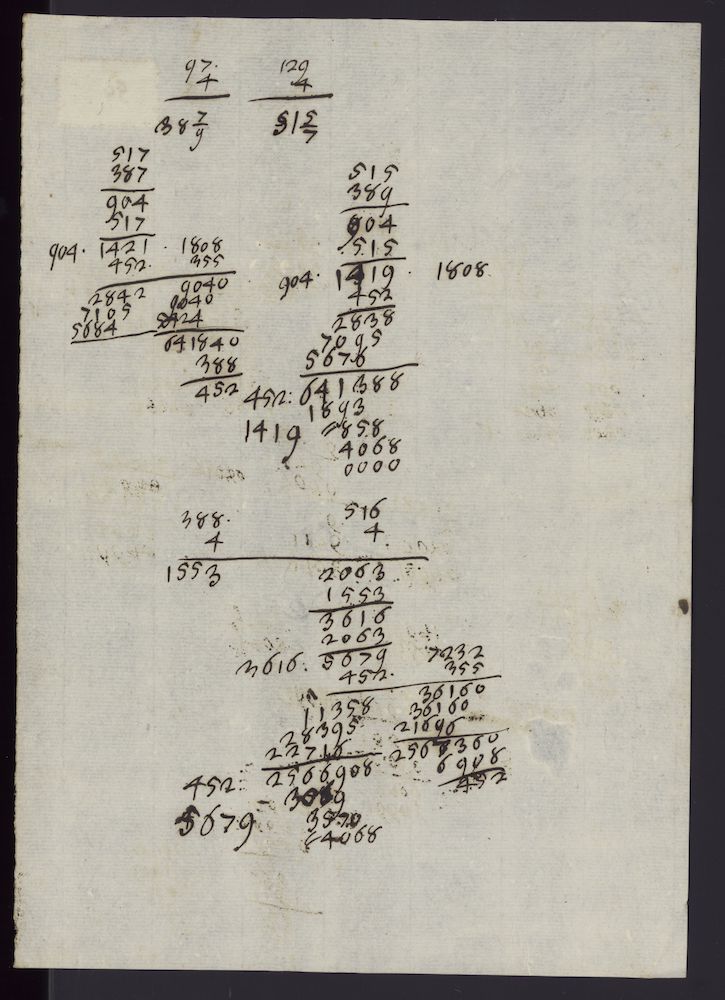 97. 129
4 4
38 7/9 51 5/7
517
387
904
517
904. 1421 . 1808
452. 355
2842 9040
7105 9040
5684 5424
641840
388
452
515
389
904
515
904. 1419. 1808
452
2838
7095
5676
452: 641388
1893
1419 2858
4068
0000
388. 516
4 4.
1553 2063
1553
3616
2063
3616. 5679 7232
452. 355
11358 36160
28395 36160
22716 21696
2566908 2567360
452: 6908
5679 452
3570
4068